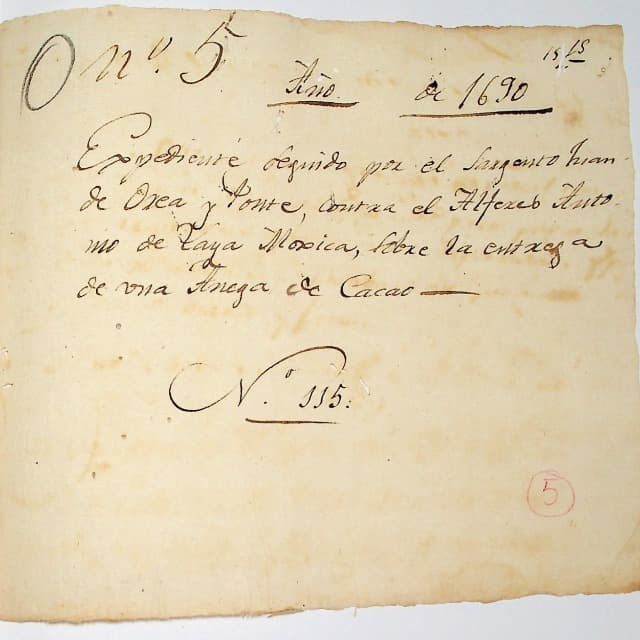 nº. 5
15 15
Año de 1690
Expediente seguido por el Sargento Juan
de Orea y Ponte, contra el Alferes Anto-
nio de Laya Moxica, sobre la entrega
de vna Anega de Cacao —
N.º 115:
5